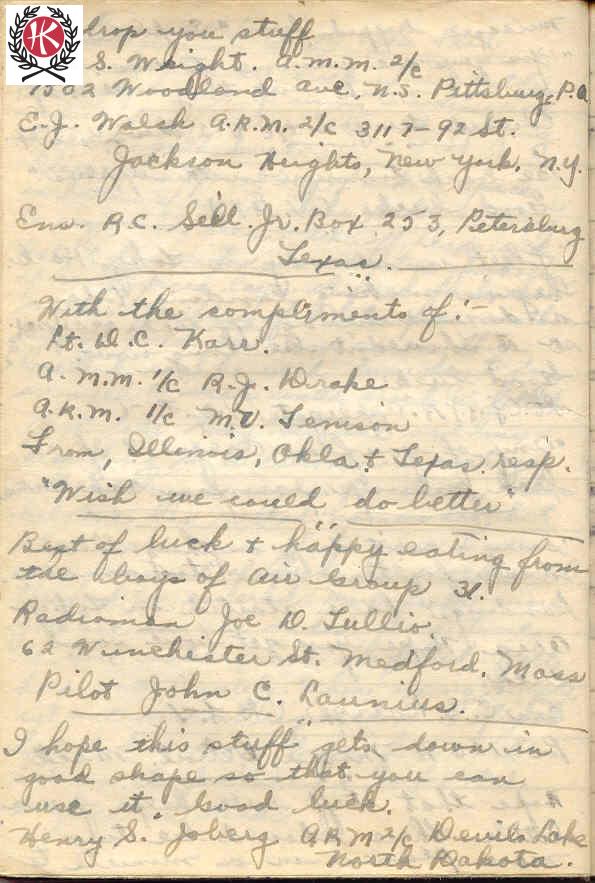 HK
drop you stuff
S. Wright. A.M.M. 2/c
1502 Woodland Ave. N.S. Pittsburg, P.a
E.J. Walsh A.R.M. 2/c 3117-92 St.
Jackson Heights, New York, N.Y.
Ens. R.C. Sell. Jr. Box 253, Petersburg
Texas.
With the compliments of:-
Lt. D.C. Karr.
A.M.M. 1/c R.J. Drake
A.R.M. 1/c M.V. Tenison
From, Illinois, Okla. & Texas. resp.
"Wish we could do better"
Best of luck & happy eating from
the boys of Air Group 31.
Radioman Joe D. Tullio.
62 Winchester St. Medford, Mass
Pilot John C. Launius.
I hope this stuff gets down in
good shape so that you can
use it. Good luck.
Henry S. Joberg ARM 2/c Devils Lake
North Dakota.